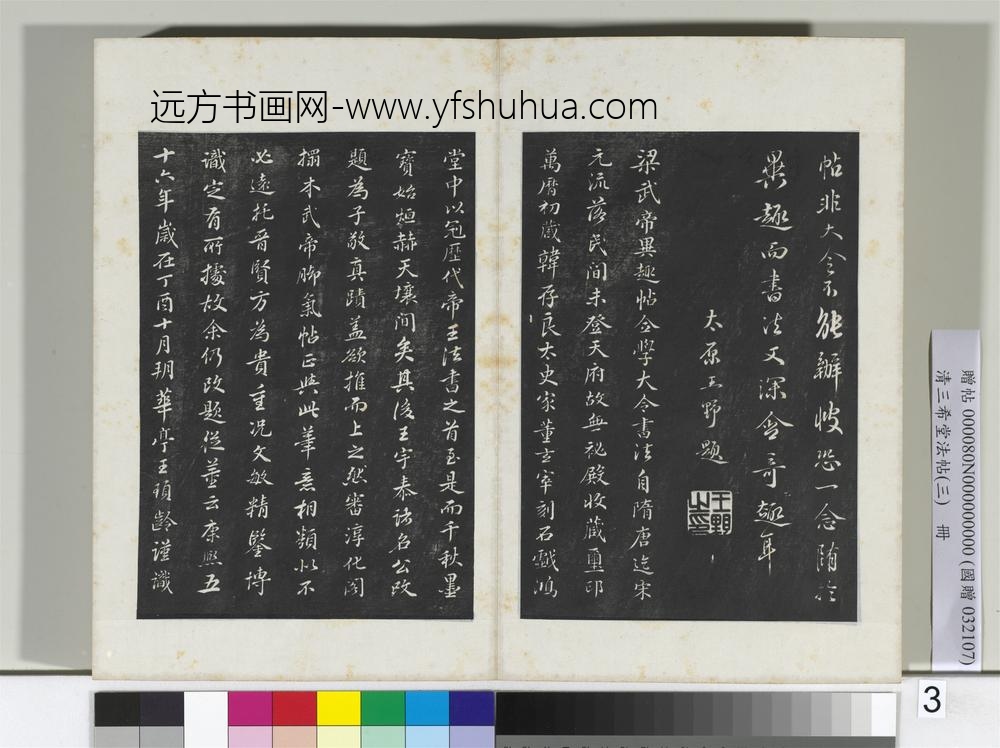 远方书画网-www.yfshuhua.com
帖非大令不能辦此恐一念随於
異趣而書法又深含奇趣耳
太原王野題
王野之印
梁武帝異趣帖全學大令書法自隋唐迄宋
元流落民間未登天府故無秘殿收藏璽印
萬曆初藏韓存良太史家董玄宰刻石戲鴻
堂中以冠歷代帝王法書之首至是而千秋墨
寶始烜赫天壤間矣其後王宇泰諸名公改
題為子敬真蹟盖欲推而上之然審淳化閣
搨本武帝脚氣帖正與此筆意相類似不
必遠托晋賢方為貴重况文敏精鑒博
識定有所據故余仍改題從董云康熙五
十六年歲在丁酉十月玥華亭王頊齡謹識
贈帖 000080N000000000 (國贈 032107)
清三希堂法帖(三) 冊
3